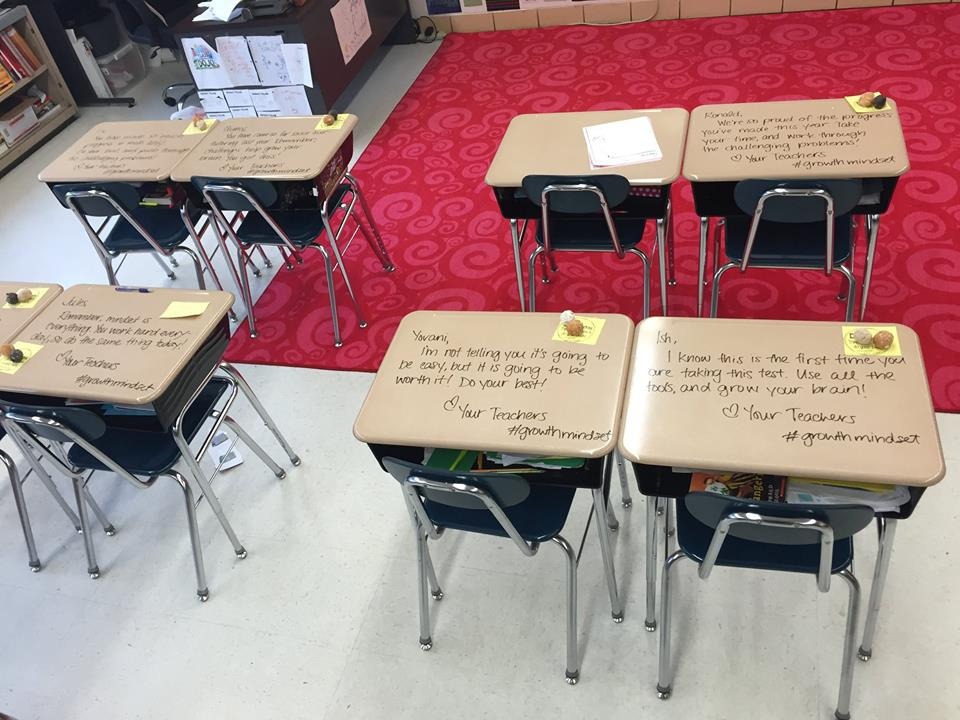 Ronald,
We're so proud of the progress
you've made this year. Take
your time, and work through
the challenging problems!
♡ Your Teachers
#growthmindset
challenge help grow your
brain. You got this!
♡ Your Teachers
#growthmindset
challenging problems!
#growthmindset
Jules,
Remember, mindset is
everything. You work hard every-
day, so do the same thing today!
♡ Your Teachers
#growthmindset
Yovani,
I'm not telling you it's going to
be easy, but it is going to be
worth it! Do your best!
♡ Your Teachers
#growthmindset
Ish,
I know this is the first time you
are taking this test. Use all the
tools, and grow your brain!
♡ Your Teachers
#growthmindset